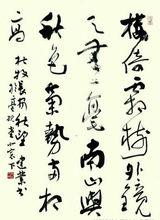 樓倚霜樹外鏡
天無一毫南山與
秋色氣勢兩相
高
杜牧長安秋望 建業書